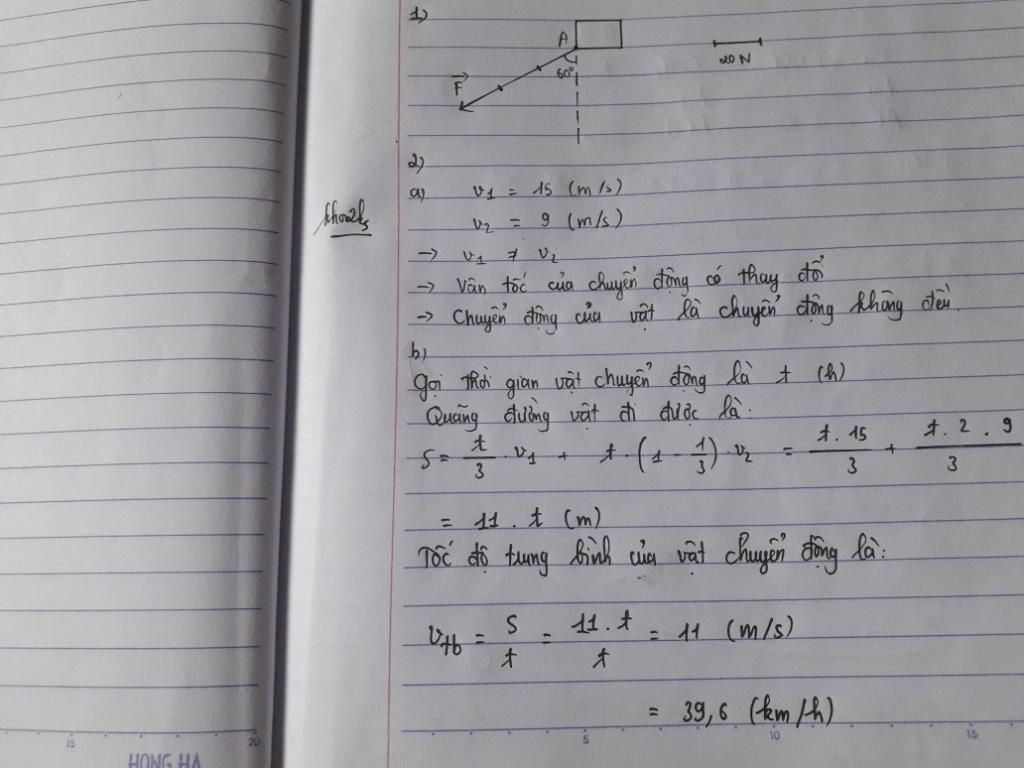 1)
A
60°
F
20 N
2)
a) v1 = 15 (m/s)
v2 = 9 (m/s)
→ v1 ≠ v2
→ Vận tốc của chuyển động có thay đổi
→ Chuyển động của vật là chuyển động không đều.
b)
Gọi thời gian vật chuyển động là t (h)
Quãng đường vật đi được là:
S = t/3 . v1 + t . (1 - 1/3) . v2 = t . 15/3 + t . 2 . 9/3
= 11 . t (m)
Tốc độ trung bình của vật chuyển động là:
vtb = S/t = 11 . t/t = 11 (m/s)
= 39,6 (km/h)
15 20
HONG HA
5 10 15